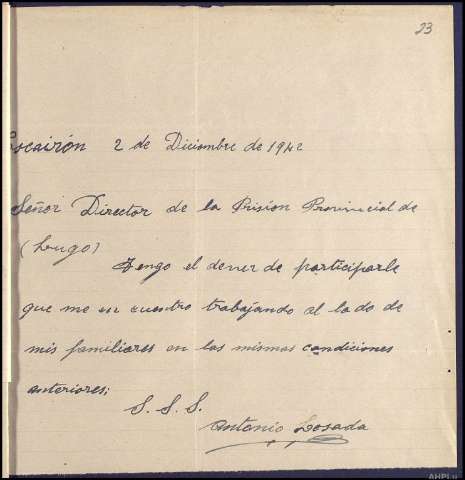 23
Escairón 2 de Diciembre de 1942
Señor Director de la Prision Provincial de
(Lugo)
Tengo el dever de participarle
que me en cuentro trabajando al lado de
mis familiares en las mismas condiciones
anteriores;
S. S. S.
Antonio Losada
AHPLu